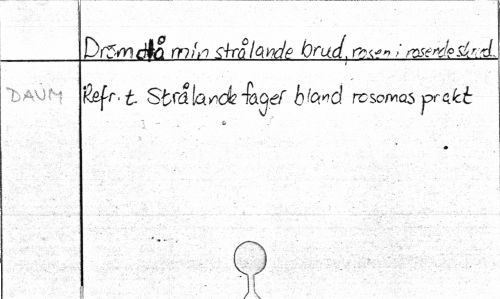 Dröm då min strålande brud, rosen i rosende skrud.
DAUM Refr. t. Strålande fager bland rosornas prakt